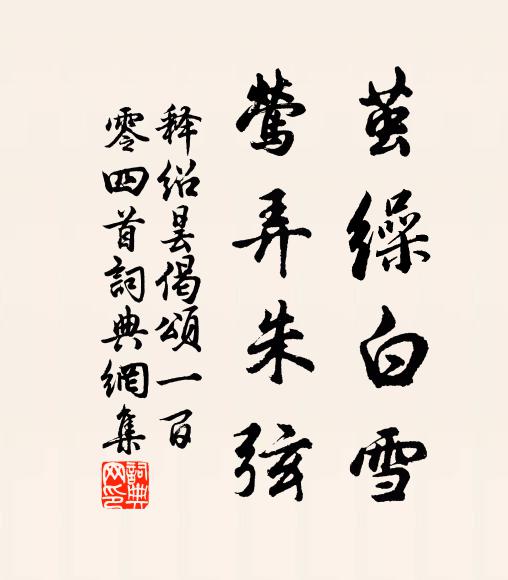 茧缲白雪
莺弄朱弦
释绍昙偈颂一百
零四首詞典網集
詞典网印